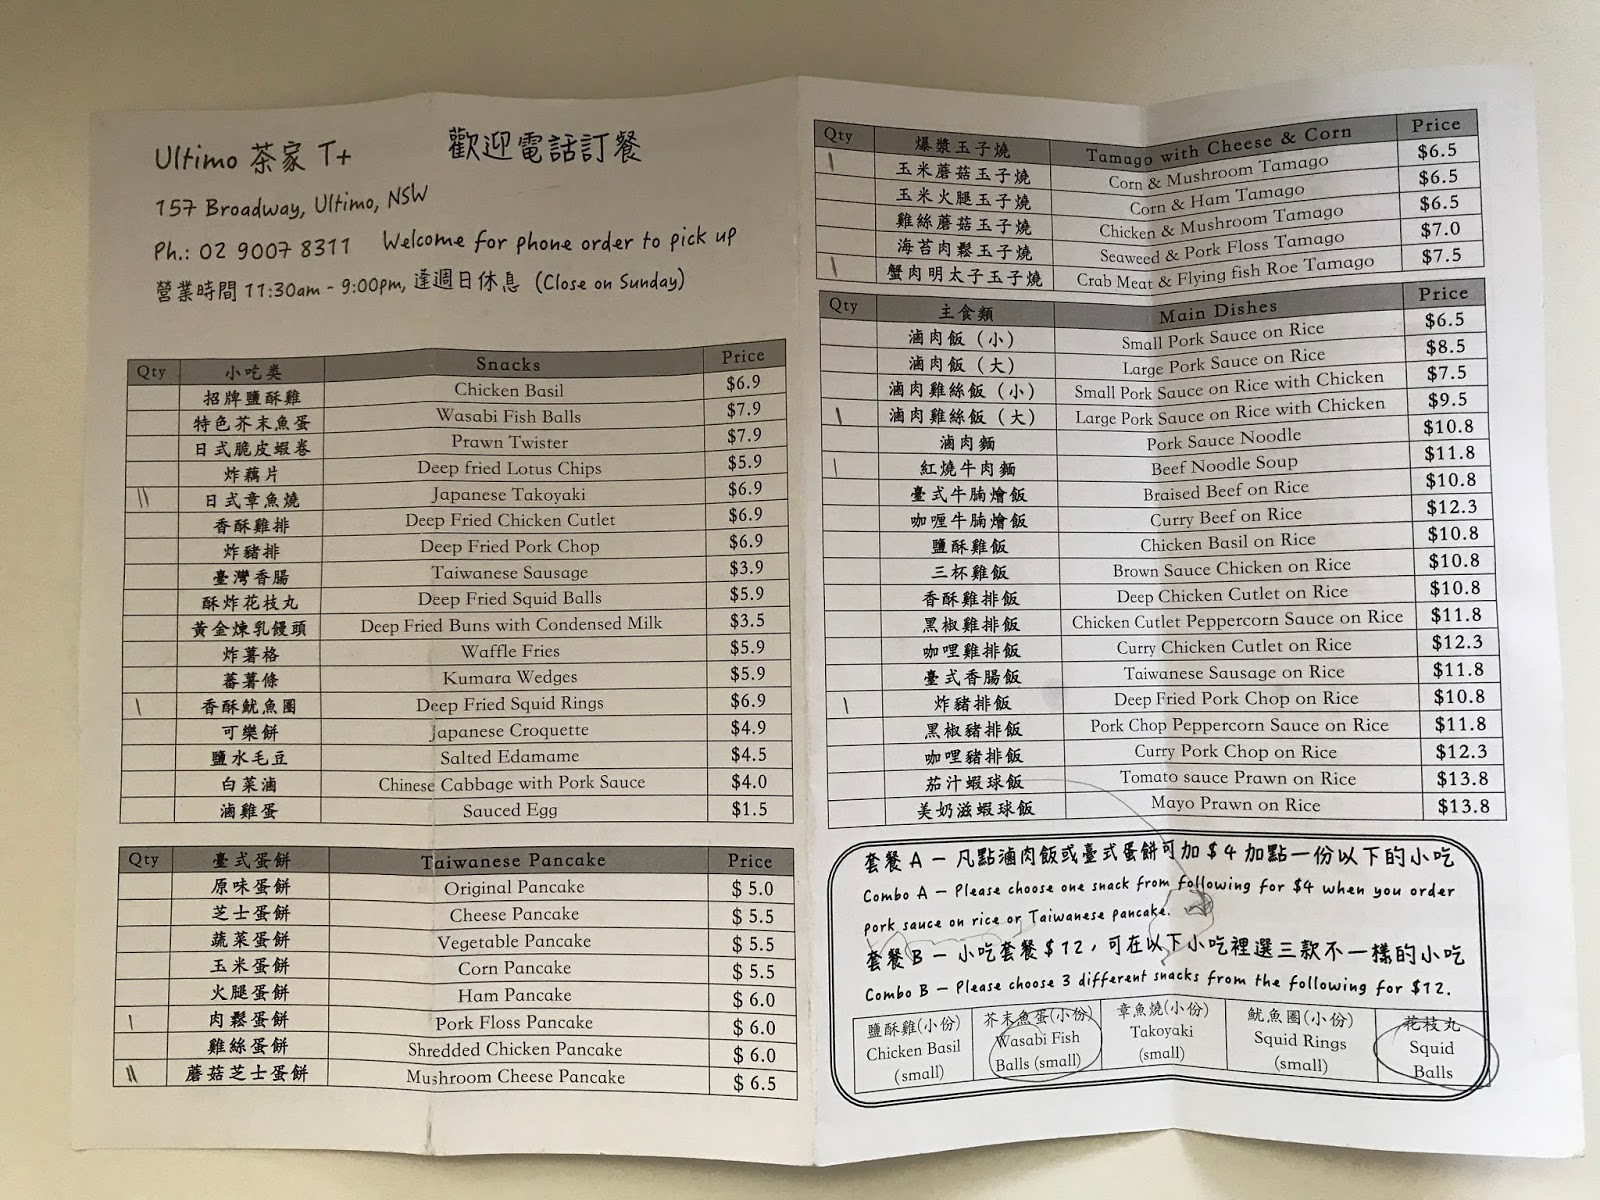 Ultimo 茶家 T+ 歡迎電話訂餐
157 Broadway, Ultimo, NSW
Ph.: 02 9007 8311 Welcome for phone order to pick up
營業時間 11:30am - 9:00pm, 逢週日休息 (Close on Sunday)
Qty 小吃类 Snacks Price
招牌鹽酥雞 Chicken Basil $6.9
特色芥末魚蛋 Wasabi Fish Balls $7.9
日式脆皮蝦卷 Prawn Twister $7.9
炸藕片 Deep fried Lotus Chips $5.9
\\ 日式章魚燒 Japanese Takoyaki $6.9
香酥雞排 Deep Fried Chicken Cutlet $6.9
炸豬排 Deep Fried Pork Chop $6.9
臺灣香腸 Taiwanese Sausage $3.9
酥炸花枝丸 Deep Fried Squid Balls $5.9
黃金煉乳饅頭 Deep Fried Buns with Condensed Milk $3.5
炸薯格 Waffle Fries $5.9
蕃薯條 Kumara Wedges $5.9
\ 香酥魷魚圈 Deep Fried Squid Rings $6.9
可樂餅 Japanese Croquette $4.9
鹽水毛豆 Salted Edamame $4.5
白菜滷 Chinese Cabbage with Pork Sauce $4.0
滷雞蛋 Sauced Egg $1.5
Qty 臺式蛋餅 Taiwanese Pancake Price
原味蛋餅 Original Pancake $ 5.0
芝士蛋餅 Cheese Pancake $ 5.5
蔬菜蛋餅 Vegetable Pancake $ 5.5
玉米蛋餅 Corn Pancake $ 5.5
火腿蛋餅 Ham Pancake $ 6.0
\ 肉鬆蛋餅 Pork Floss Pancake $ 6.0
雞絲蛋餅 Shredded Chicken Pancake $ 6.0
\\ 蘑菇芝士蛋餅 Mushroom Cheese Pancake $ 6.5
Qty 爆漿玉子燒 Tamago with Cheese & Corn Price
\ 玉米蘑菇玉子燒 Corn & Mushroom Tamago $6.5
玉米火腿玉子燒 Corn & Ham Tamago $6.5
雞絲蘑菇玉子燒 Chicken & Mushroom Tamago $6.5
海苔肉鬆玉子燒 Seaweed & Pork Floss Tamago $7.0
\ 蟹肉明太子玉子燒 Crab Meat & Flying fish Roe Tamago $7.5
Qty 主食類 Main Dishes Price
滷肉飯（小） Small Pork Sauce on Rice $6.5
滷肉飯（大） Large Pork Sauce on Rice $8.5
滷肉雞絲飯（小） Small Pork Sauce on Rice with Chicken $7.5
\ 滷肉雞絲飯（大） Large Pork Sauce on Rice with Chicken $9.5
滷肉麵 Pork Sauce Noodle $10.8
\ 紅燒牛肉麵 Beef Noodle Soup $11.8
臺式牛腩燴飯 Braised Beef on Rice $10.8
咖喱牛腩燴飯 Curry Beef on Rice $12.3
鹽酥雞飯 Chicken Basil on Rice $10.8
三杯雞飯 Brown Sauce Chicken on Rice $10.8
香酥雞排飯 Deep Chicken Cutlet on Rice $10.8
黑椒雞排飯 Chicken Cutlet Peppercorn Sauce on Rice $11.8
咖哩雞排飯 Curry Chicken Cutlet on Rice $12.3
臺式香腸飯 Taiwanese Sausage on Rice $11.8
\ 炸豬排飯 Deep Fried Pork Chop on Rice $10.8
黑椒豬排飯 Pork Chop Peppercorn Sauce on Rice $11.8
咖哩豬排飯 Curry Pork Chop on Rice $12.3
茄汁蝦球飯 Tomato sauce Prawn on Rice $13.8
美奶滋蝦球飯 Mayo Prawn on Rice $13.8
套餐 A - 凡點滷肉飯或臺式蛋餅可加 $4 加點一份以下的小吃
Combo A - Please choose one snack from following for $4 when you order
pork sauce on rice or Taiwanese pancake.
套餐 B - 小吃套餐 $12，可在以下小吃裡選三款不一樣的小吃
Combo B - Please choose 3 different snacks from the following for $12.
鹽酥雞(小份) 芥末魚蛋(小份) 章魚燒(小份) 魷魚圈(小份) 花枝丸
Chicken Basil Wasabi Fish Takoyaki Squid Rings Squid
(small) Balls (small) (small) (small) Balls